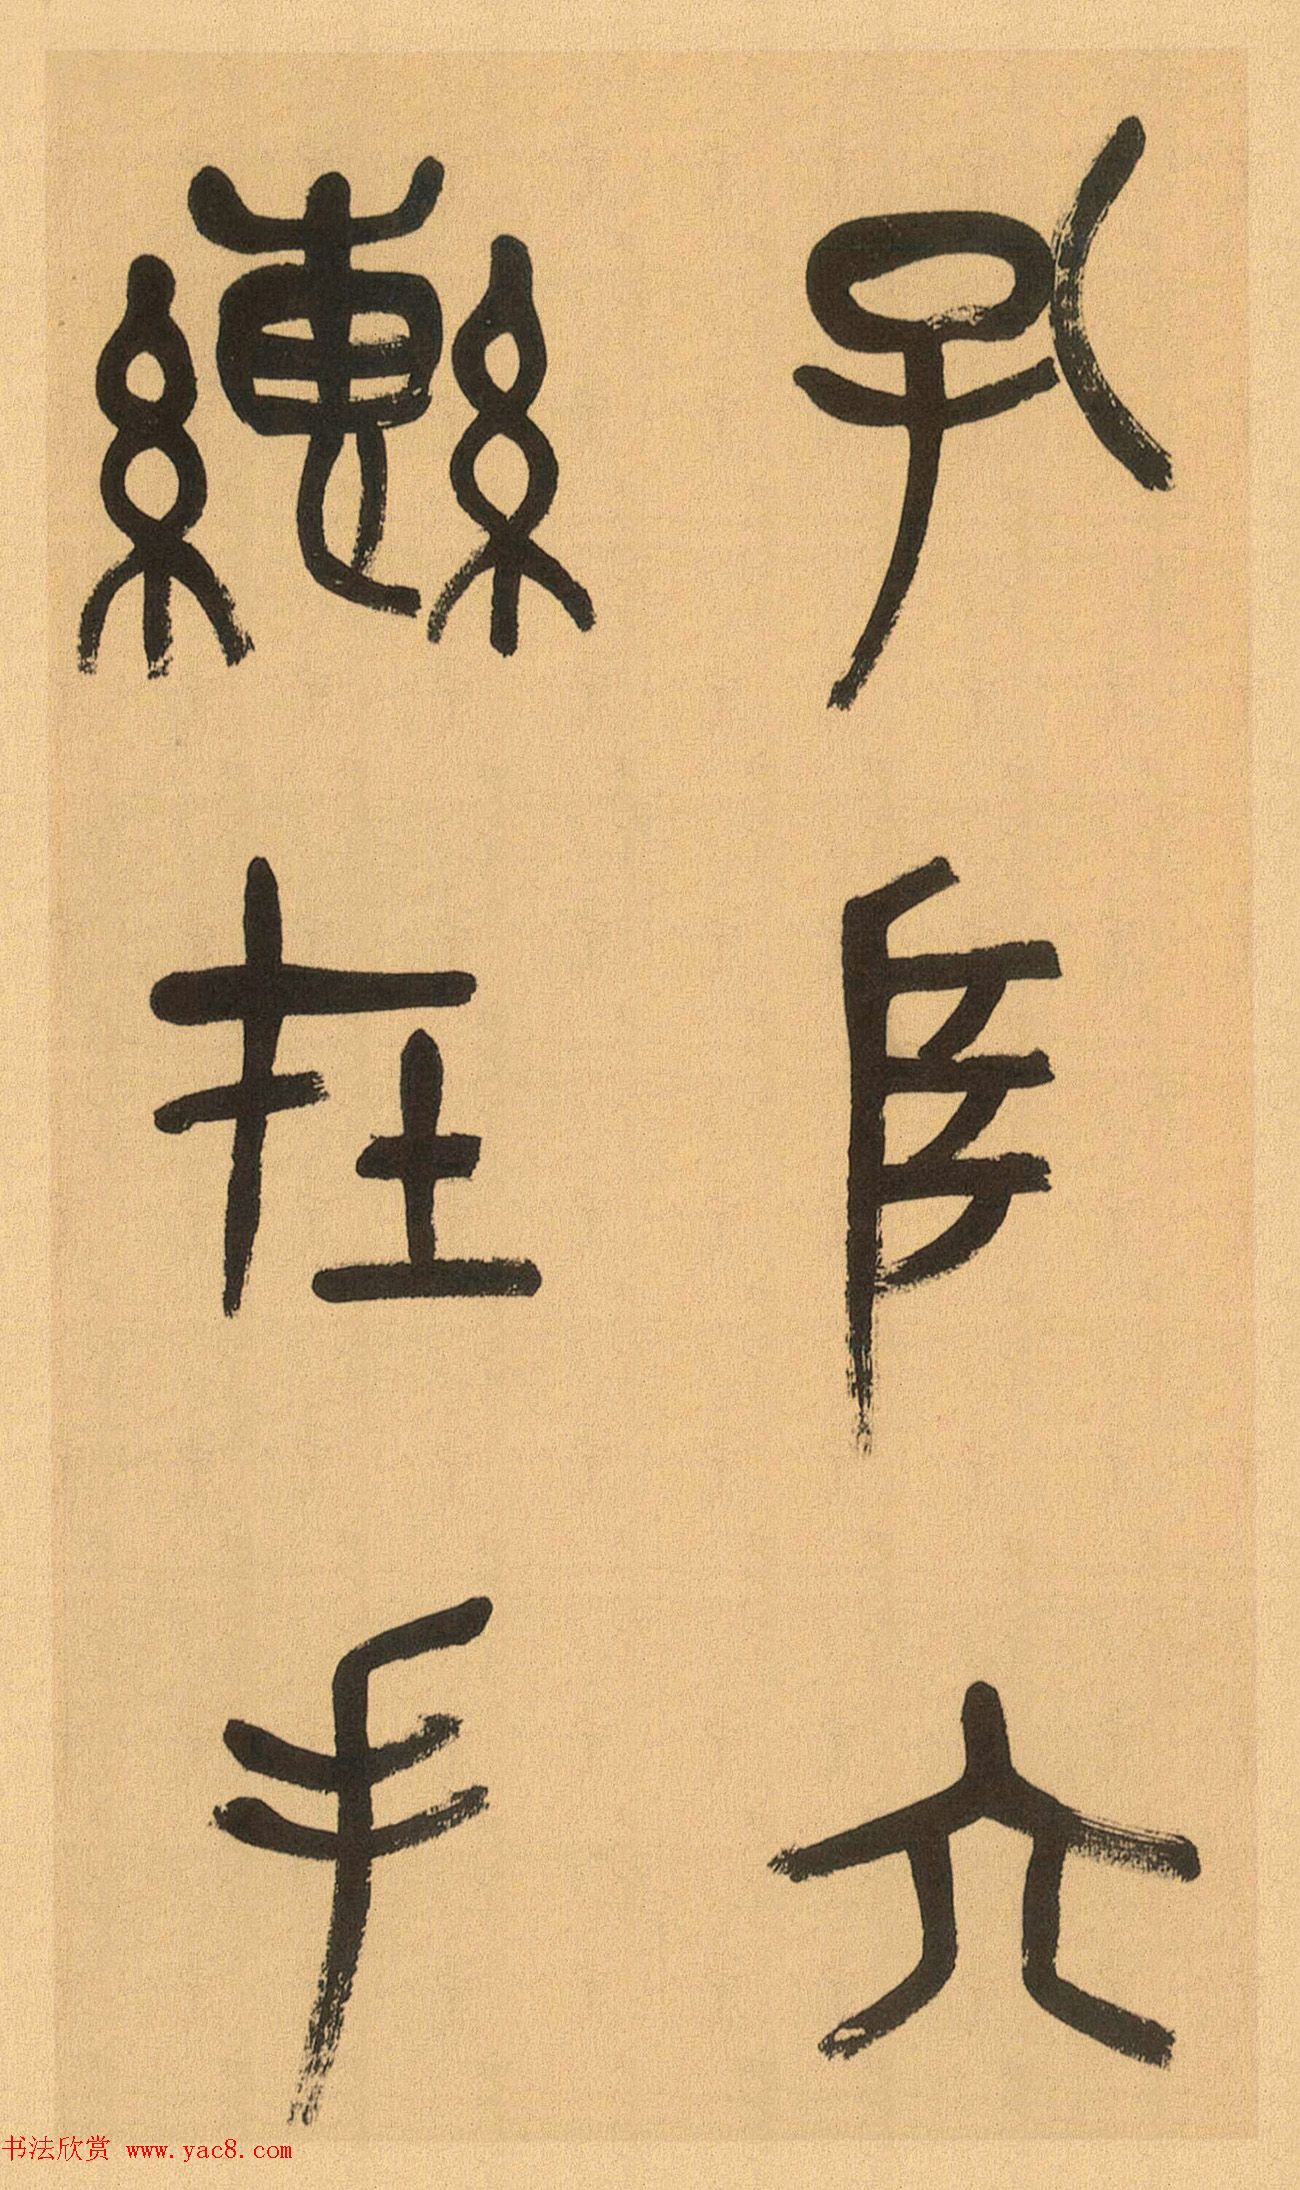 孔阜六
轡在手
书法欣赏 www.yac8.com